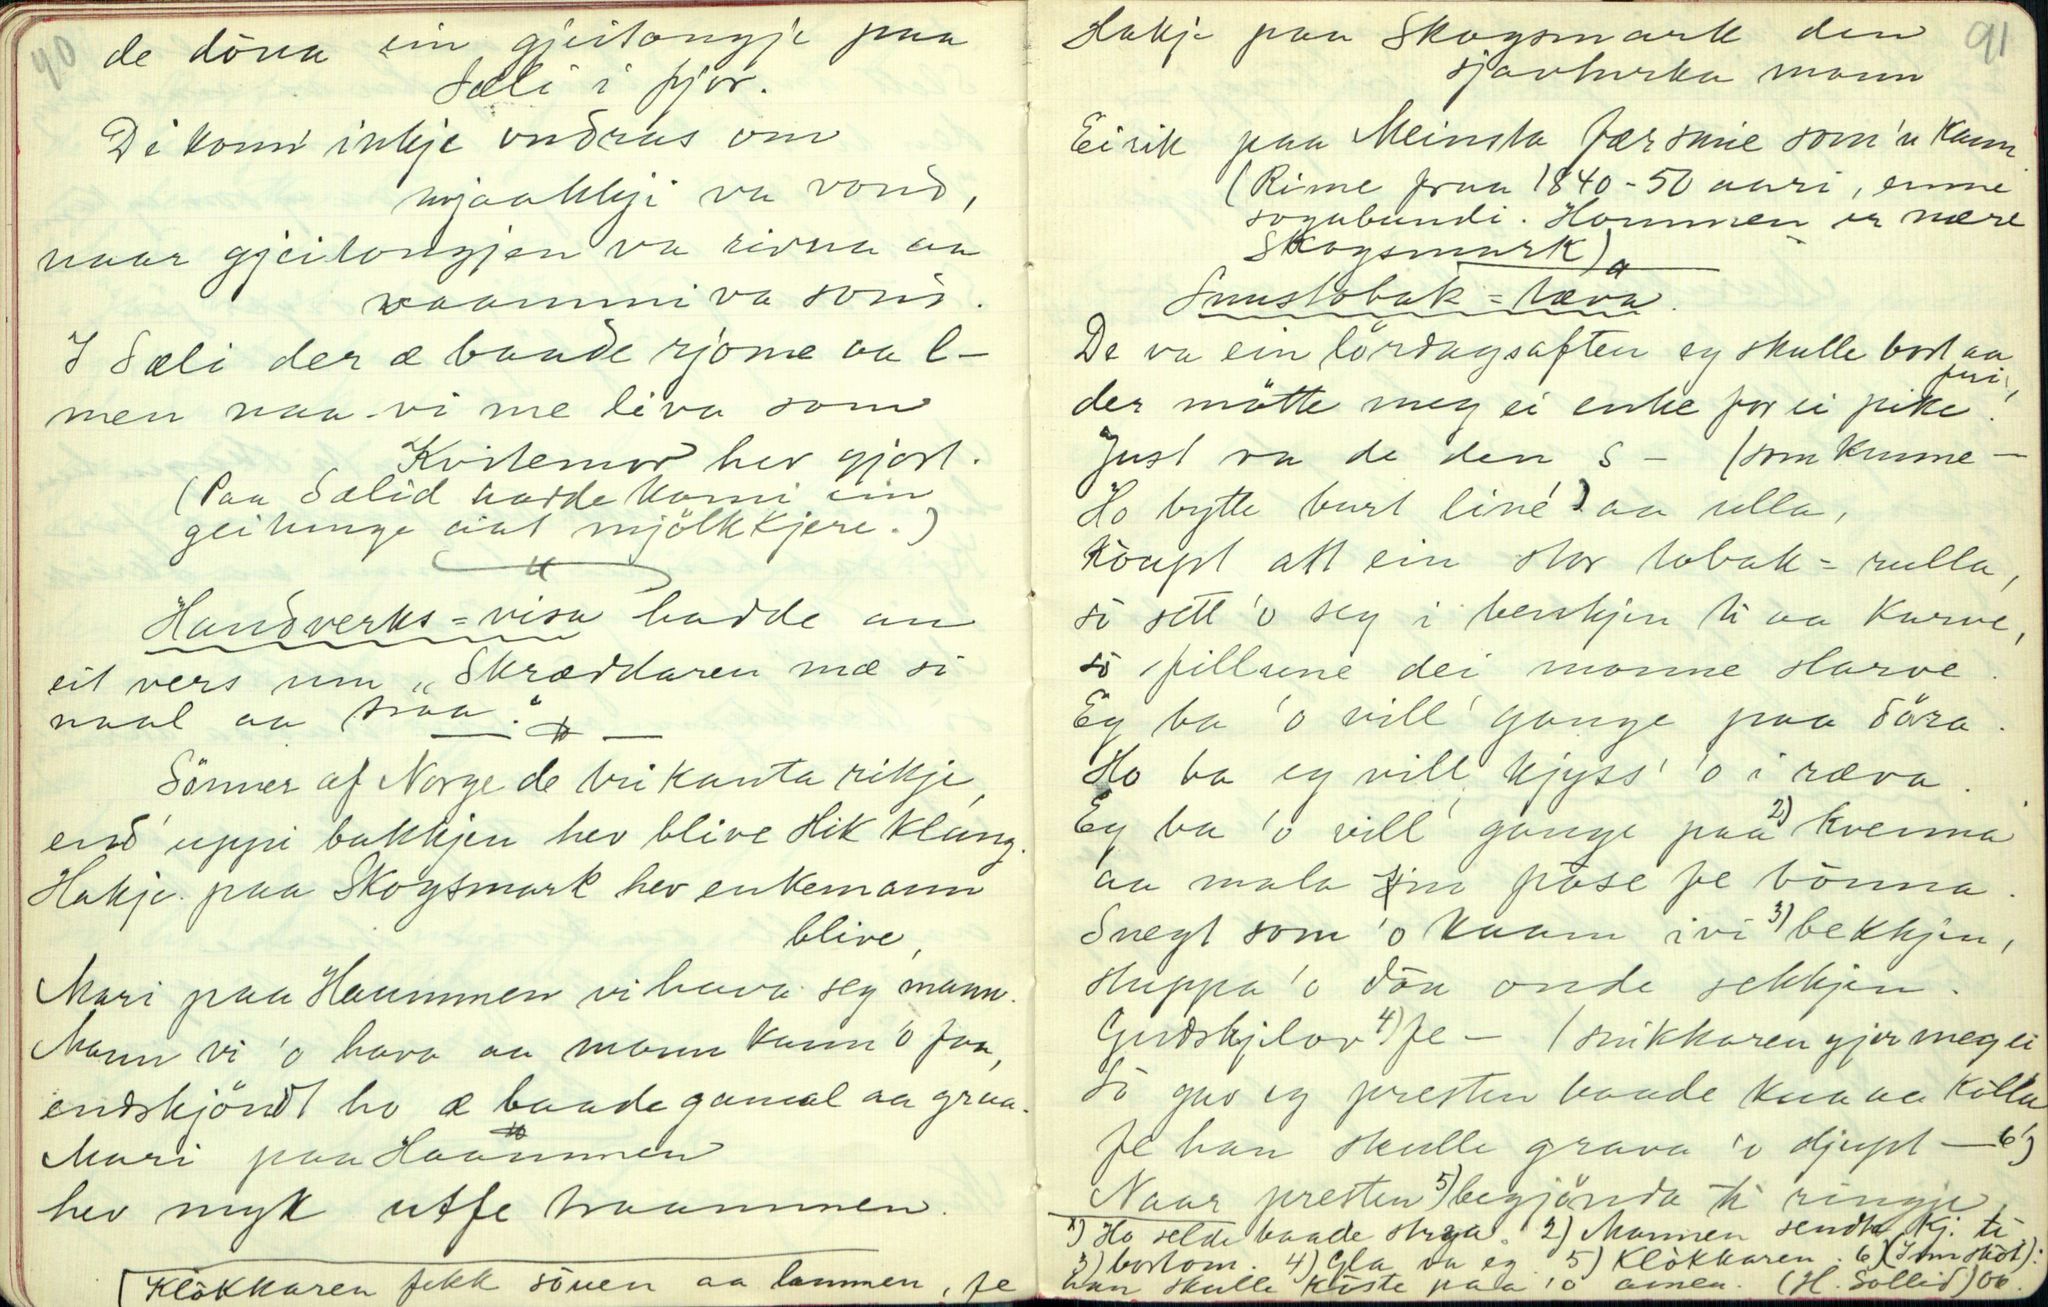 90
de döua ein gjeitongje paa
Sæli i fjor.
Di konn' inkje ondras om
mjaakkji va vond,
naar gjeitongjen va rivna aa
vaammi va sond.
I Sæli der æ baade rjome aa l–
men naa vi me liva som
Kvitemor hev gjort.
(Paa Sælid hadde komi ein
geitunge i mjölkkjere.)
Handverks=visa hadde an
eit vers um „Skræddaren mæ si
naal aa traa."
Sönner af Norge de trikanta rikje,
end' uppi bakkjen hev blive Hik klang.
Hakje paa Skogsmark hev enkemann
blive,
Mari paa Haammen vi hava seg mann.
Mann vi 'o hava aa mann kann 'o faa,
endskjöndt ho æ baade gamal aa graa.
Mari paa Haammen
hev myk utfe traammen.
(Klökkaren fekk söuen aa lammen, fe
91
Hakje paa Skogsmark den
sjavturka mann
Eirik paa Meinsta fær snie som 'n kann.
(Rime fraa 1840-50 aari, emne
sogubundi. Hommen er nære
Skogsmark)
Snustobak=tæva.
De va ein lördagsaften eg skulle bort aa
fri,
der mötte meg ei enke for ei pike.
Just va de den S – (som kunne –
Ho bytte burt line 1) aa ulla,
Köupt att ein stor tobak=rulla,
so sett 'o seg i benkjen ti aa karve,
so fillune dei monne starve.
Eg ba 'o vill' gange paa döra.
Ho ba eg vill' kjyss' 'o i ræva.
Eg ba 'o vill' gange paa 2) kvenna
aa mala ein pose fe bönna.
Snegt som 'o kaam ivi 3) bekkjen,
stuppa 'o döu onde sekkjen.
Gudskjelov 4) fe – (snikkaren gjer meg ei
So gav eg presten baade kua aa kölla
fe han skulle grava 'o djupt — 6)
Naar presten 5) begjönda ti ringje
1) Ho selde baade strya. 2) Mannen sendte kj. ti
3) bortom. 4) Gla va eg 5) Klökkaren. 6) (Innskot):
han skulle kaste paa 'o amen. (H. Sollid) 06.